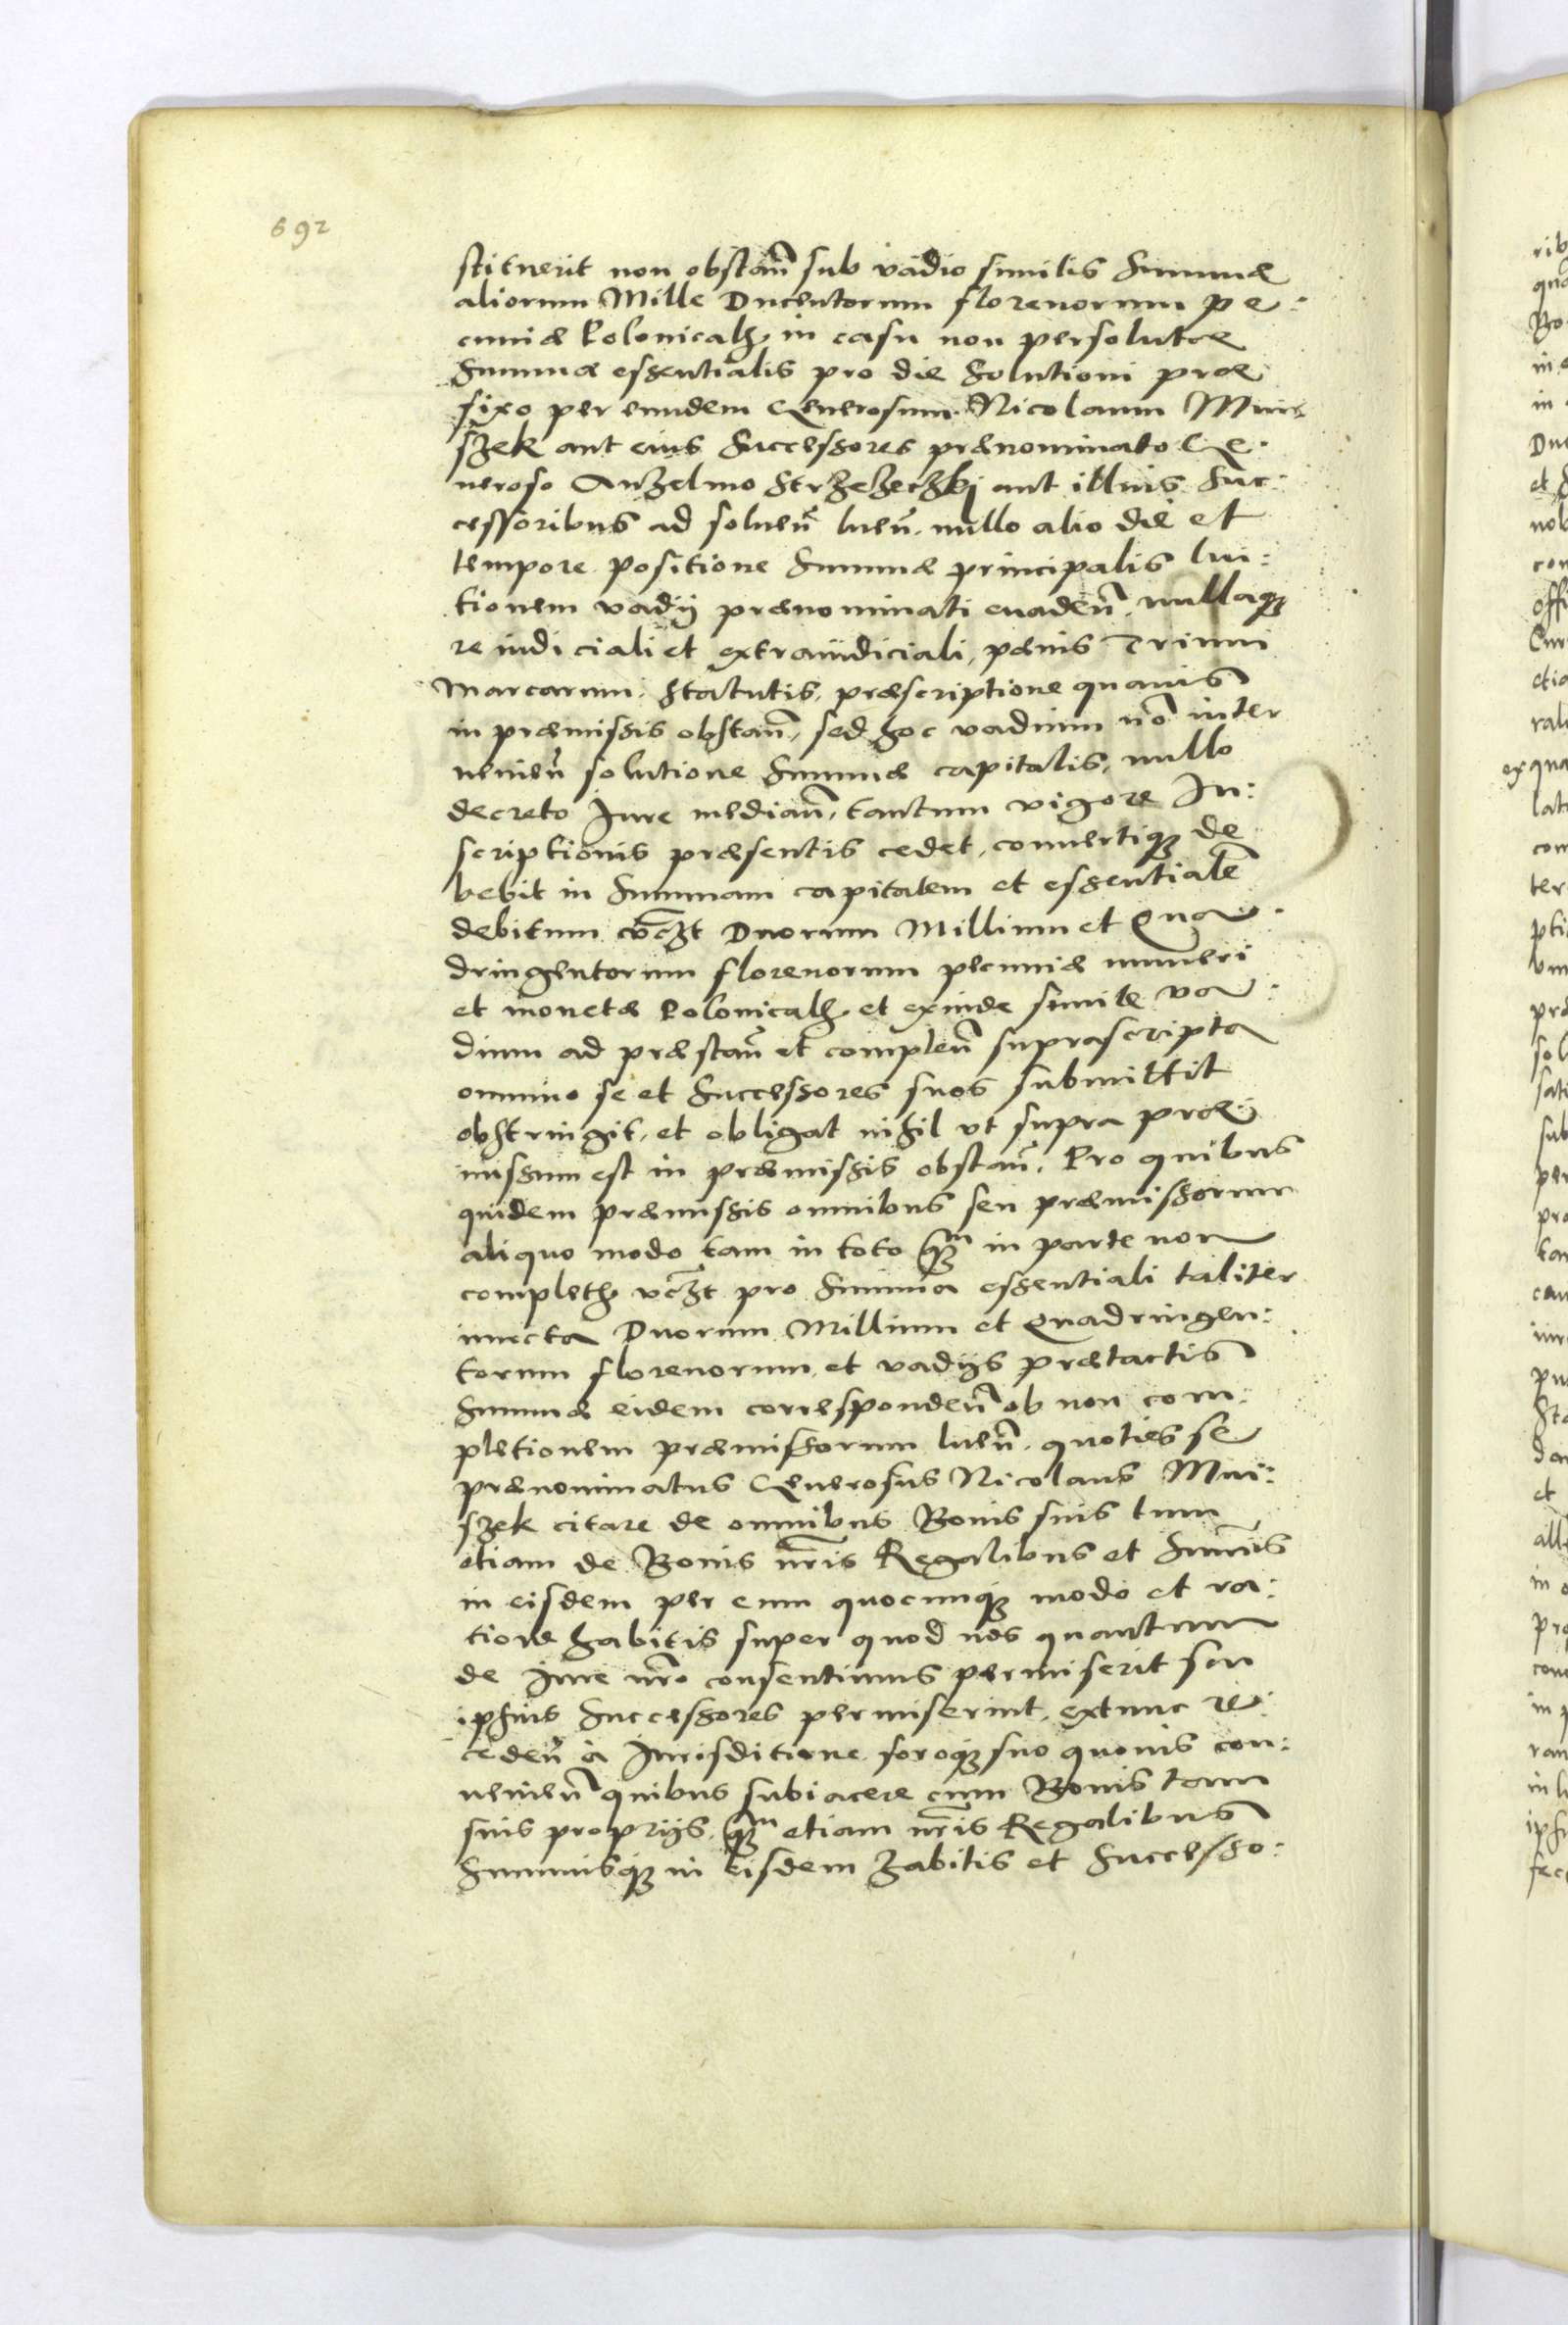 692
stituerit non obstañ sub vadio similis Summæ
aliorum Mille Ducentorum florenorum pe:
cuniæ Polonicalz, in casu non persolutæ
Summæ essentialis pro die Solutioni præ
fixo per eundem Generosum Nicolaum Mni:
szek aut eius Successores prænominato Ge:
neroso Anzelmo Strzezeczkj aut illius Suc:
cessoribus ad soluen̄ luen̄. nullo alio die et
tempore positione Summæ principalis lui:
tionem vadij prænominati euaden̄. nullaqȝ
re iudiciali et extraiudiciali, pænis Trium
Marcarum. Statutis, præscriptione quauis
in præmissis obstan̄, sed hoc vadium nō inter
uenien̄ solutione Summæ capitalis, nullo
decreto Jure median̄, tantum vigore In:
scriptionis præsentis cedet, conuertiqȝ de
bebit in Summam capitalem et essentialē
debitum vc̄zt Duorum Millium et Qua:
dringentorum florenorum pecuniæ numeri
et monetæ Polonicalz, et exinde simile va:
dium ad præstan̄ et complen̄ suprascripta
omnino se et Successores suos submittit
obstringit, et obligat nihil vt supra præ:
missum est in præmissis obstan̄. Pro quibus
quidem præmissis omnibus seu præmissorum
aliquo modo tam in toto qȝm in parte non
completh, vc̄zt pro Summa essentiali taliter
inuecta Duorum Millium et Quadringen:
torum florenorum, et vadijs prætactis
Summæ eidem corresponden̄ ob non com:
pletionem præmissorum luen̄. quoties se
prænominatus Generosus Nicolaus Mni:
szek citare de omnibus Bonis suis tum
etiam de Bonis nr̄is Regalibus et Sum̄is
in eisdem per eum quocunqȝ modo et ra:
tione habitis super quod nos quantum
de Jure nr̄o consentimus permiserit seu
ipsius Successores permiserint, extunc re:
ceden̄ à Jurisditione foroqȝ suo quouis con:
uenien̄ quibus subiacere cum Bonis tam
suis proprijs, qȝm etiam nr̄is Regalibus
Summisqȝ in eisdem habitis et Successo: